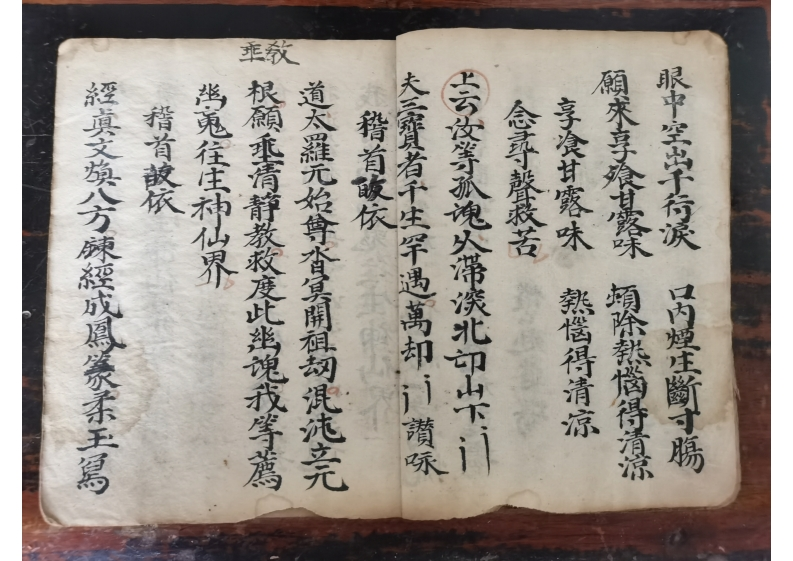 眼中空出千行淚 口内煙生斷寸腸
願來享飡甘露味 頓除熱惱得清涼
享飡甘露味 熱惱得清涼
念尋聲救苦
上云汝等孤魂久滯深北邙山下
夫三寶者千生罕遇萬却 讃咏
稽首皈依
道太羅元始尊沓冥開祖劫混沌立元
教垂
根願垂清靜教救度此幽魂我等薦
幽魂往生神仙界
稽首皈依
經眞文煥八方鍊經成鳳篆柔玉寫